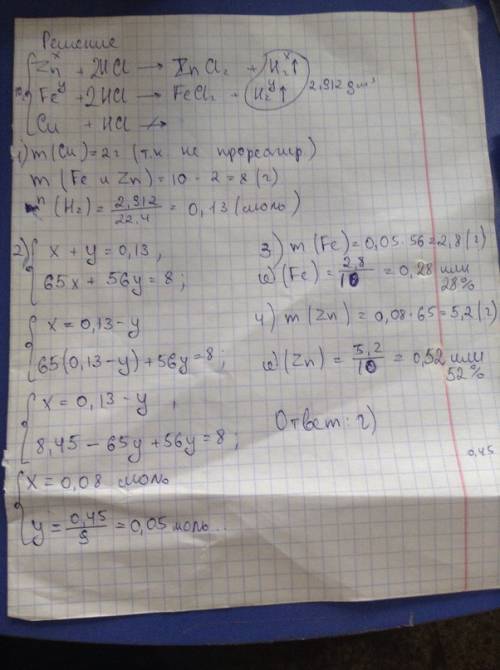 Решение
Zn + 2HCl → ZnCl₂ + H₂↑
Fe + 2HCl → FeCl₂ + H₂↑ 2,912 дм³
Cu + HCl ↛
1) m(Cu) = 2г (т.к. не прореагир)
m (Fe и Zn) = 10 - 2 = 8 (г)
n (H₂) = 2,912/22,4 = 0,13 (моль)
2) { x + y = 0,13,
65x + 56y = 8;
{ x = 0,13 - y
65(0,13 - y) + 56y = 8;
{ x = 0,13 - y,
8,45 - 65y + 56y = 8;
{ x = 0,08 моль
y = 0,45/9 = 0,05 моль
3) m(Fe) = 0,05·56 = 2,8(г)
ω(Fe) = 2,8/10 = 0,28 или
28%
4) m(Zn) = 0,08·65 = 5,2(г)
ω(Zn) = 5,2/10 = 0,52 или
52%
Ответ: г)
0,45